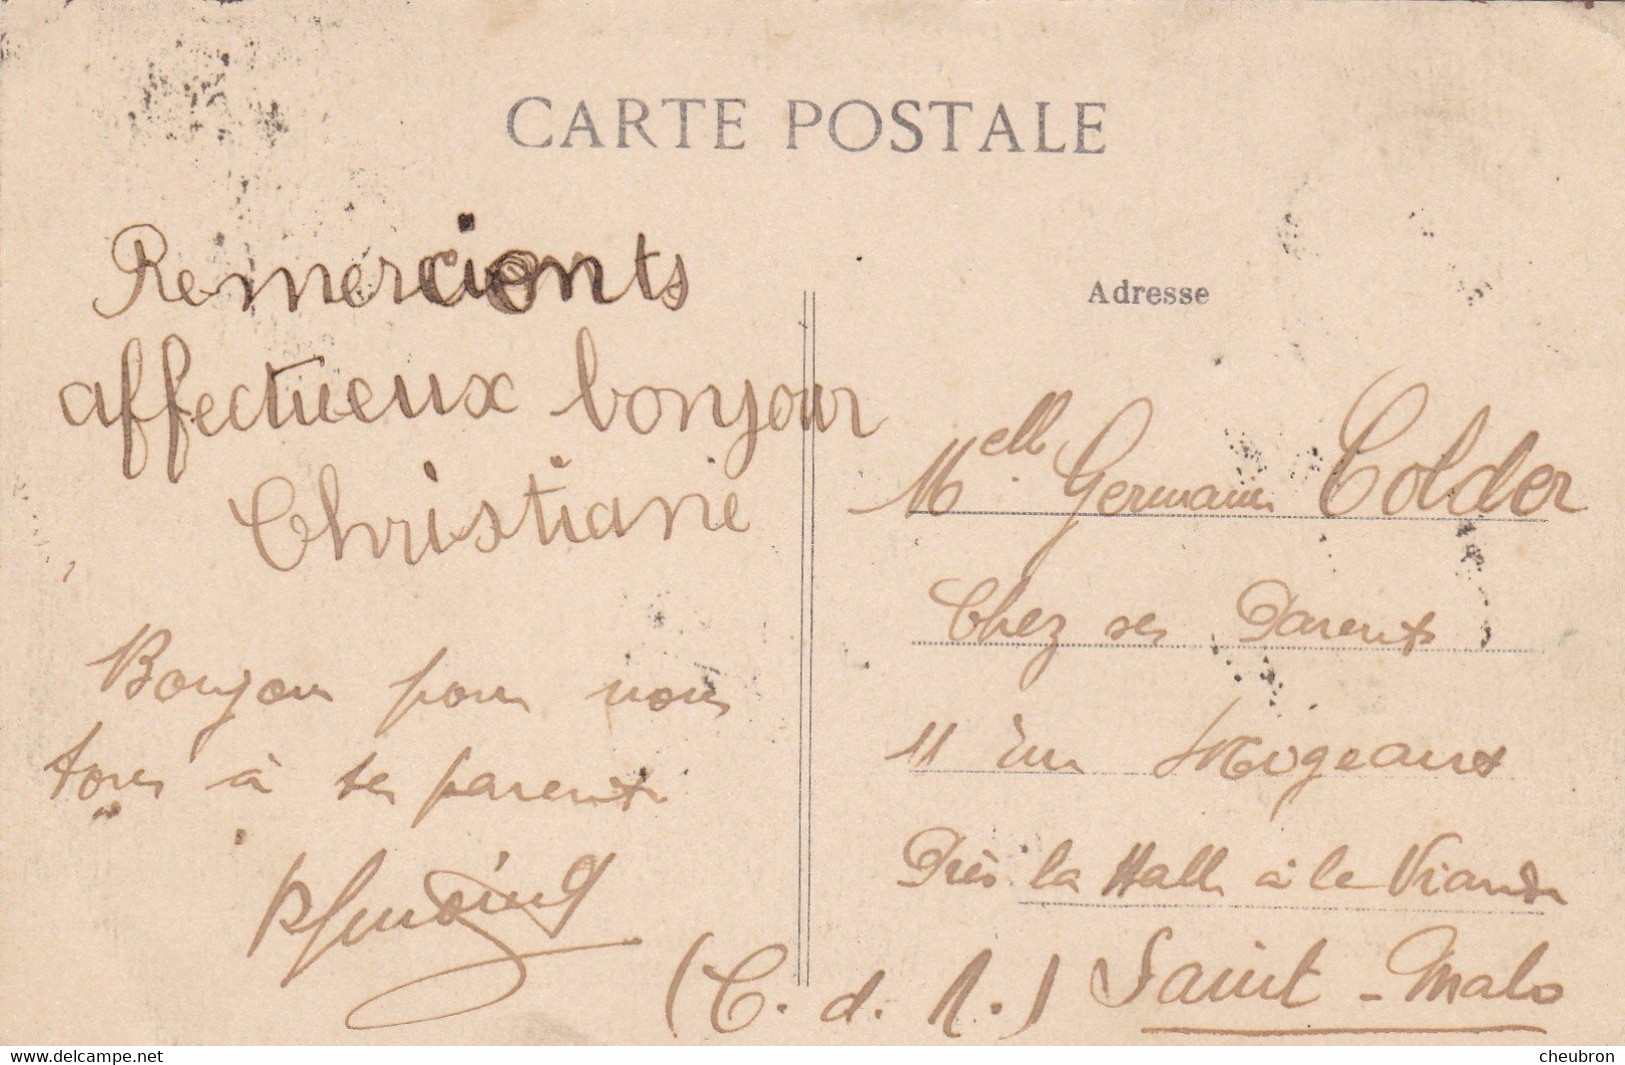 CARTE POSTALE
Remercionts
affectueux bonjour
Christiane
Bonjour pour nous
tous à tes parents
Adresse
Melle Germaine Colder
Chez ses Parents
11 rue
Près la Halle à la Viande
(C. d. N.) Saint-Malo
delcampe.net
cheubron